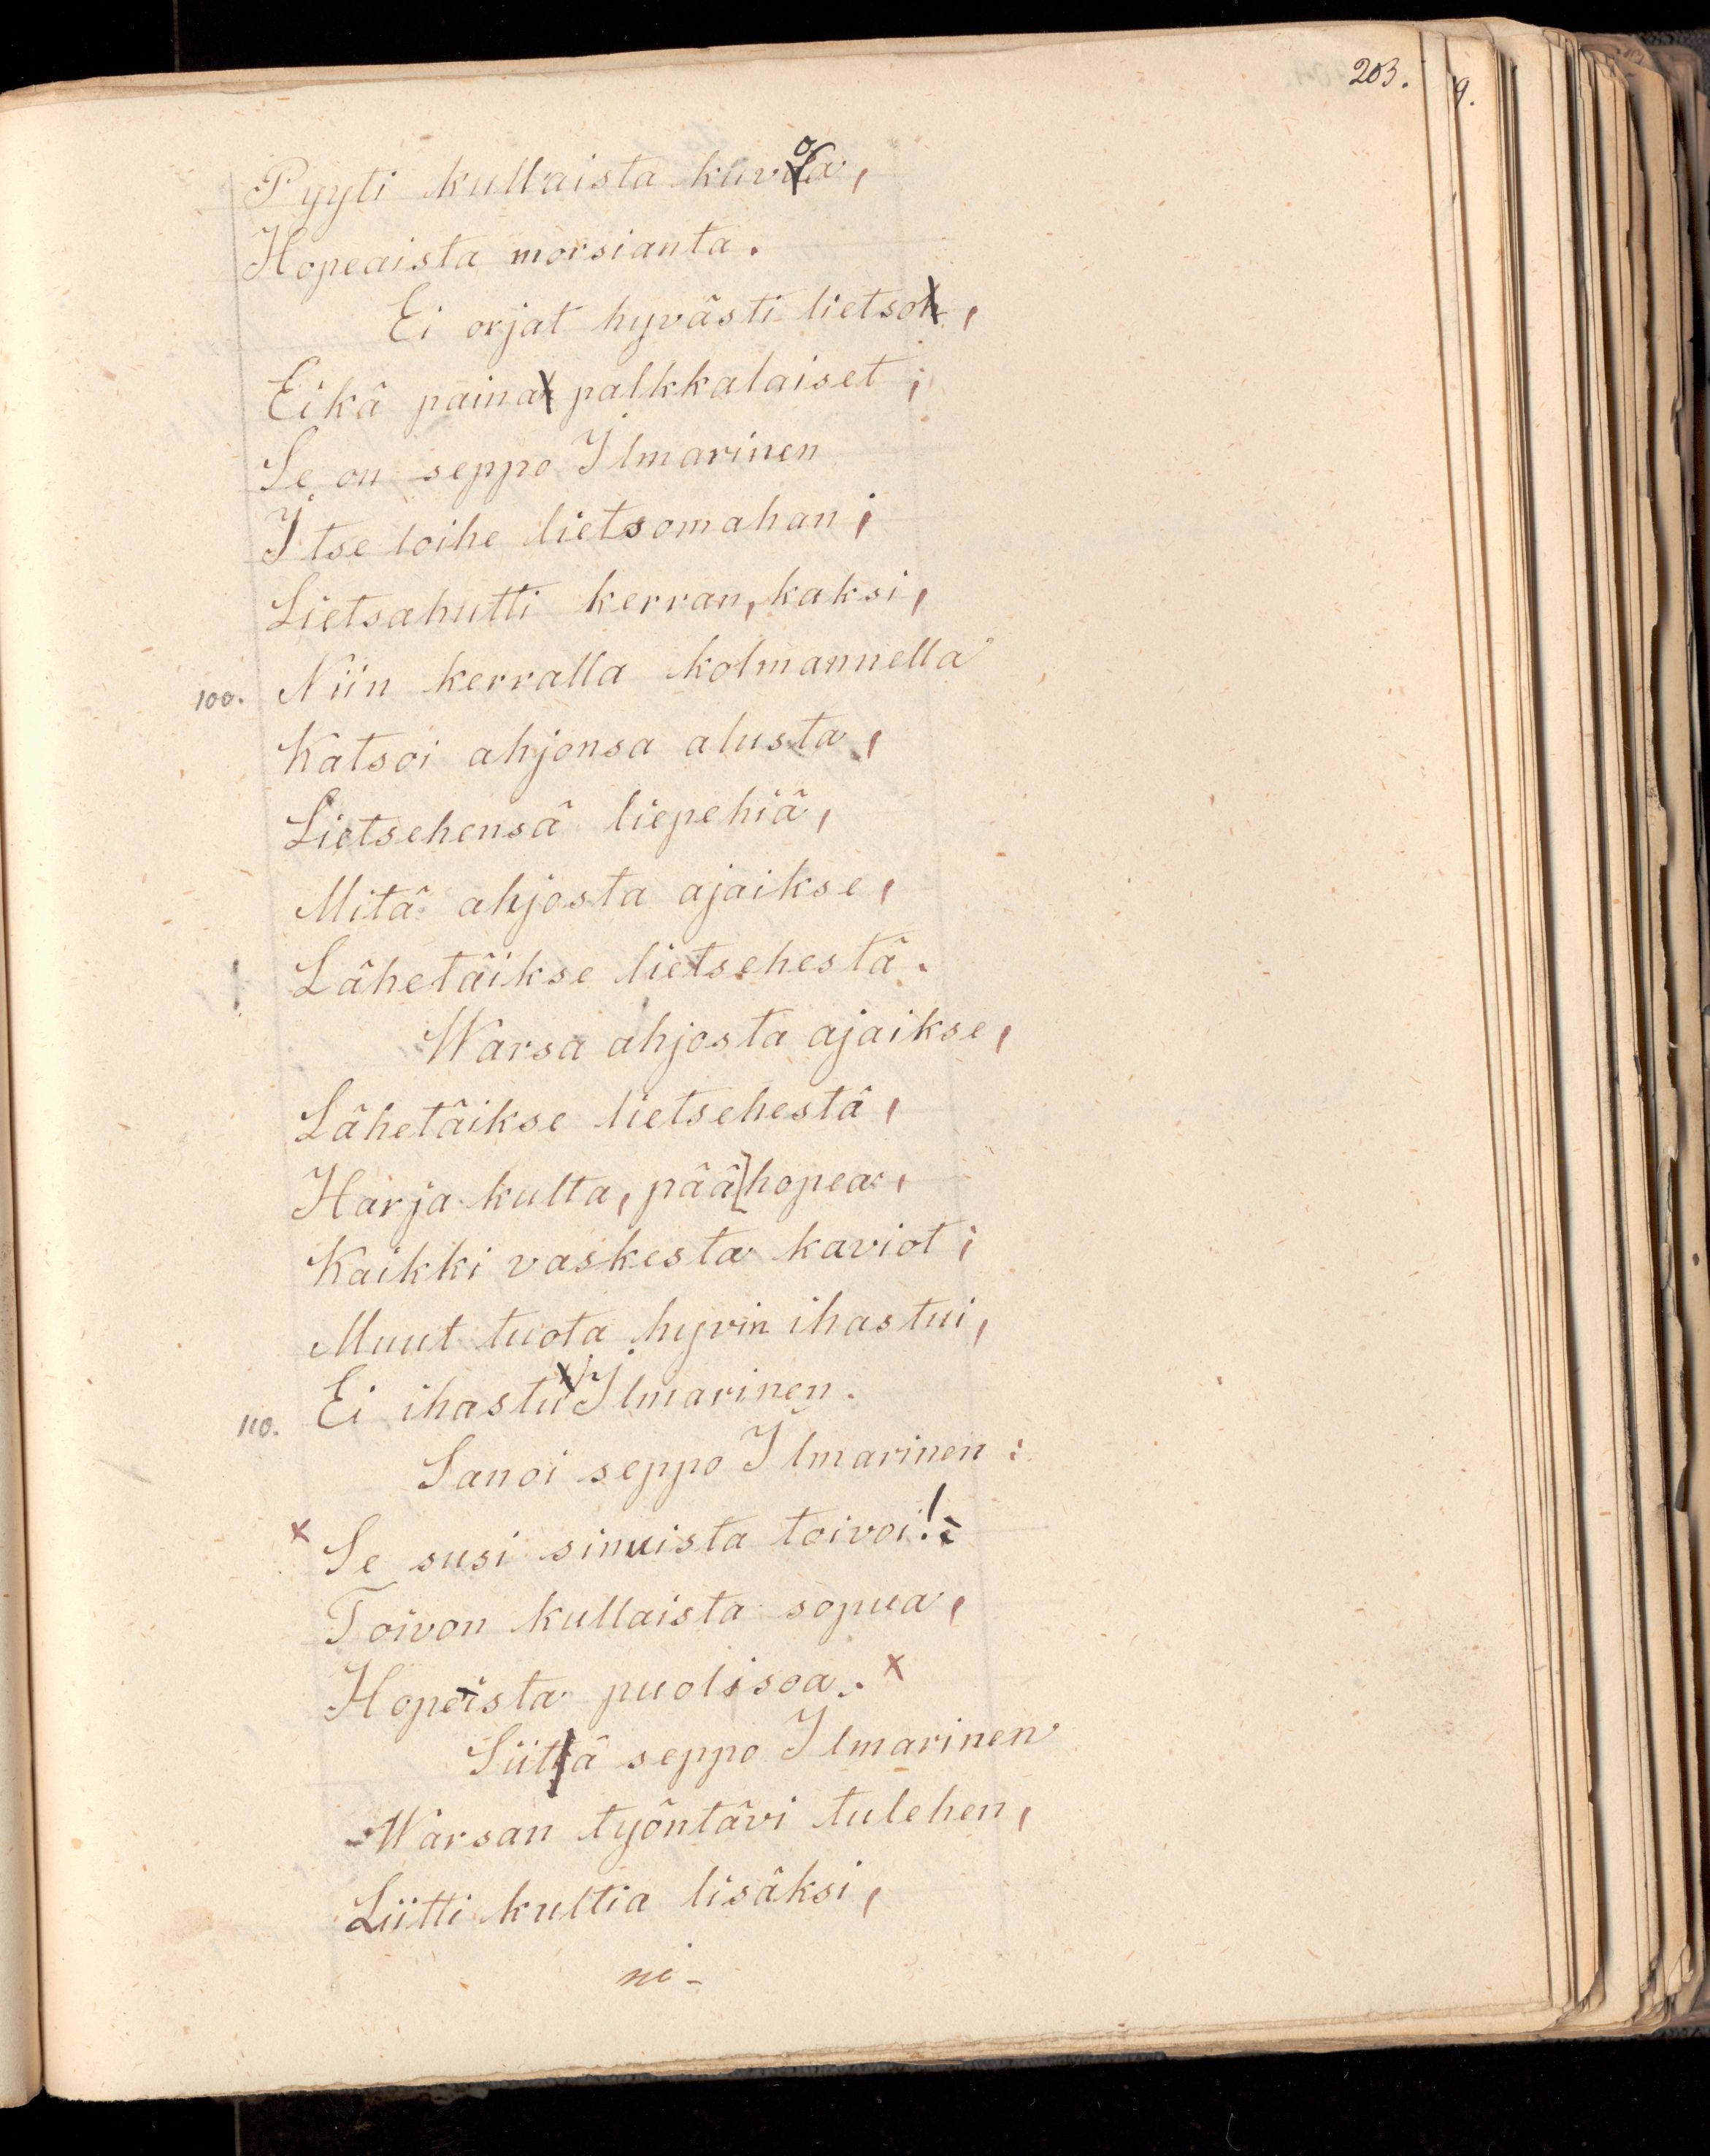 203.
9.
Pyyti kullaista kuvoa,
Hopeaista morsianta.
Ei orjat hyvästi lietso,
Eikä paina palkkalaiset;
Se on seppo Ilmarinen
Itse loihe lietsomahan;
Lietsahutti kerran, kaksi,
100. Niin kerralla kolmannella
Katsoi ahjonsa alusta,
Lietsehensä liepehiä,
Mitä ahjosta ajaikse,
Lähetäikse lietsehestä.
Warsa ahjosta ajaikse,
Lähetäikse lietsehestä,
Harja kulta, pää hopea,
Kaikki vaskesta kaviot;
Muut tuota hyvin ihastui,
110. Ei ihastu Ilmarinen.
Sanoi seppo Ilmarinen:
x Se susi sinuista toivoi!
Toivon kullaista sopua,
Hopeista puolisoa. x
Siitä seppo Ilmarinen
Warsan työntävi tulehen,
Liitti kultia lisäksi,
ni-